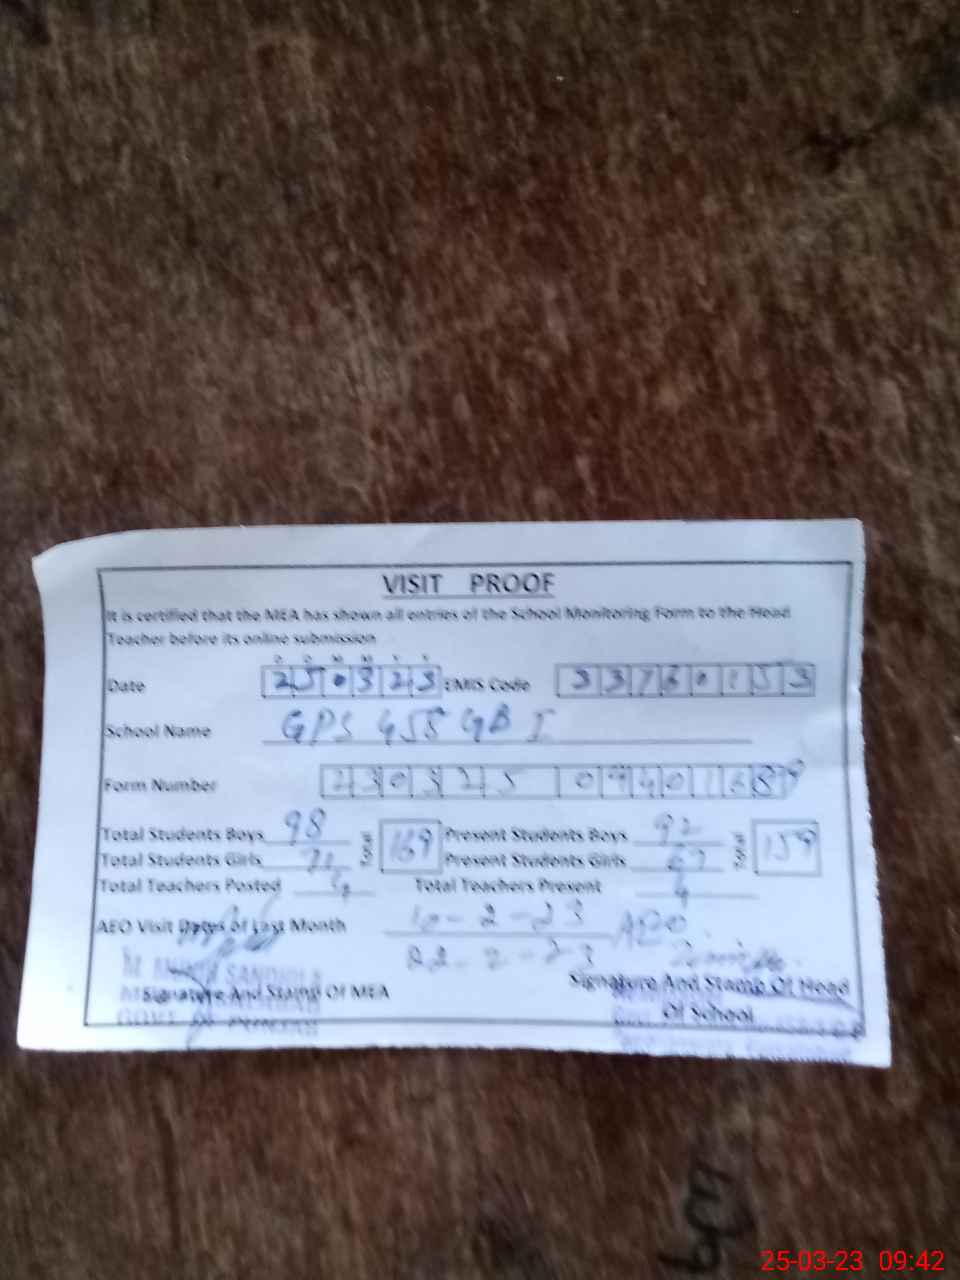 VISIT PROOF
It is certified that the MEA has shown all entries of the School Monitoring Form to the Head
Teacher before its online submission
D D M M Y Y
Date 250323 EMIS Code 33760153
School Name GPS 455 GB I
Form Number 230325 0940168
Total Students Boys 98 169 Present Students Boys 92 159
Total Students Girls 71 Present Students Girls 67
Total Teachers Posted Total Teachers Present 4
AEO Visit Dates of Last Month 10-2-23 AEO
22-2-23
Signature And Stamp Of MEA Signature And Stamp Of Head
Of School
GOVT OF PUNJAB
25-03-23 09:42